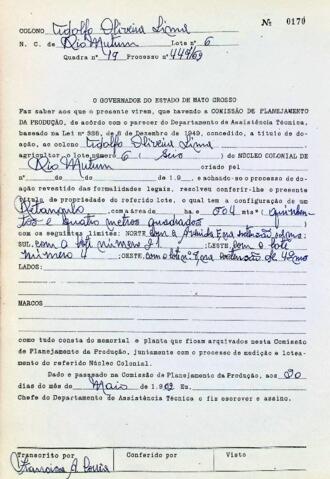 Nº 0170
COLONO Adolfo Oliveira Lima
N. C. de Rio Mutum Lote nº 6
Quadra nº 19 Processo nº 449/69
O GOVERNADOR DO ESTADO DE MATO GROSSO
Faz saber aos que o presente virem, que havendo a COMISSÃO DE PLANEJAMENTO
DA PRODUÇÃO, de acôrdo com o parecer do Departamento de Assistência Técnica,
baseado na Lei nº 336, de 6 de Dezembro de 1949, concedido, a título de doa-
ção, ao colono Adolfo Oliveira Lima
agricultor o lote número 6 (Seis) do NÚCLEO COLONIAL DE
Rio Mutum criado pel
nº de de de 19 e achando-se o processo de do-
ação revestido das formalidades legais, resolveu conferir-lhe o presente
título de propriedade do referido lote, o qual tem a configuração de um
Retangulo com a área de ha. e 504 mts² (quinhen-
tos e quatro metros quadrados)
com os seguintes limites: NORTE, com a Avenida
SUL, com o lote número 21 ;LESTE, com o lote
número 4 ;OESTE, com o lote nº
LADOS:
MARCOS
como tudo consta do memorial e planta que ficam arquivados nesta Comissão
de Planejamento da Produção, juntamente com o processo de medição e lotea-
mento do referido Núcleo Colonial.
Dado e passado na Comissão de Planejamento da Produção, aos 20
dias do mês de Maio de 19 Eu,
Chefe do Departamento de Assistência Técnica o fiz escrever e assino.
Transcrito por Conferido por Visto
Francisca A.